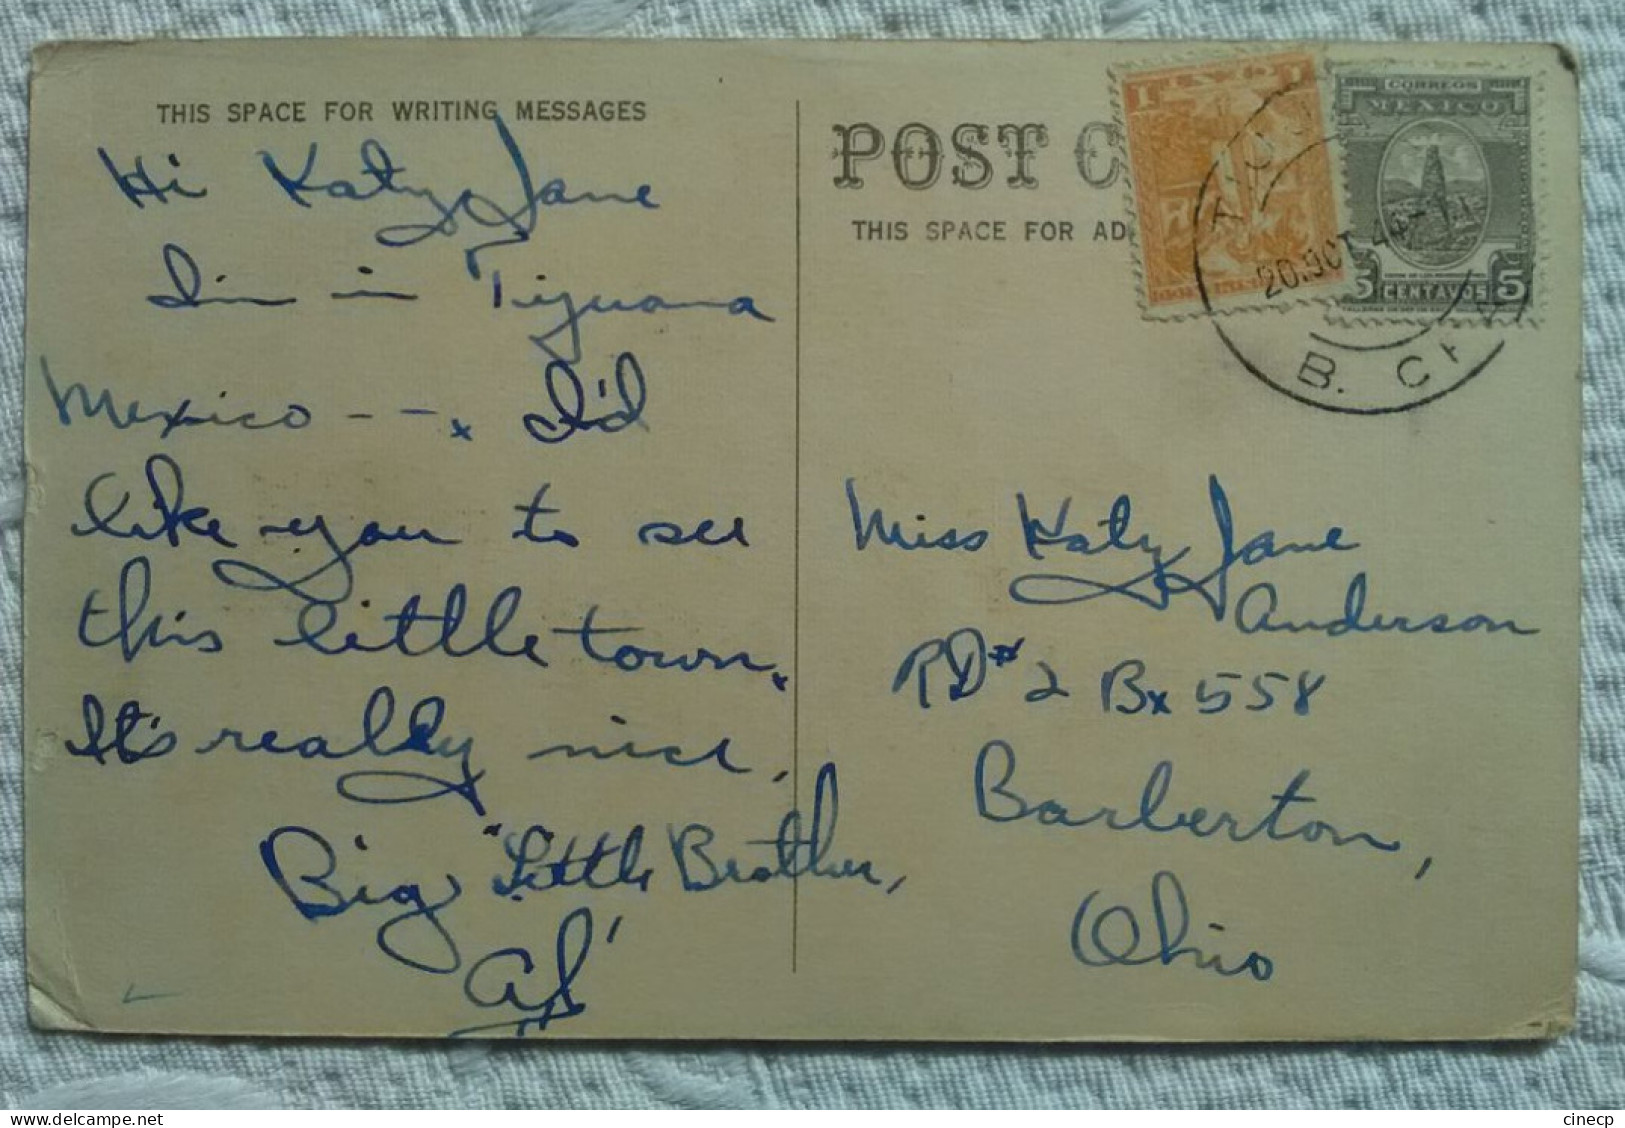 THIS SPACE FOR WRITING MESSAGES
Hi Katy Jane
I'm in Tijuana
Mexico - - . I'd
like you to see
this little town.
It's really nice.
Big "Little Brother,
POST C
THIS SPACE FOR AD
1
CORREOS
MEXICO
5 CENTAVOS 5
20.OCT
B. C
Miss Katy Jane
Anderson
RD # 2 Bx 558
Barberton,
Ohio
cinecp